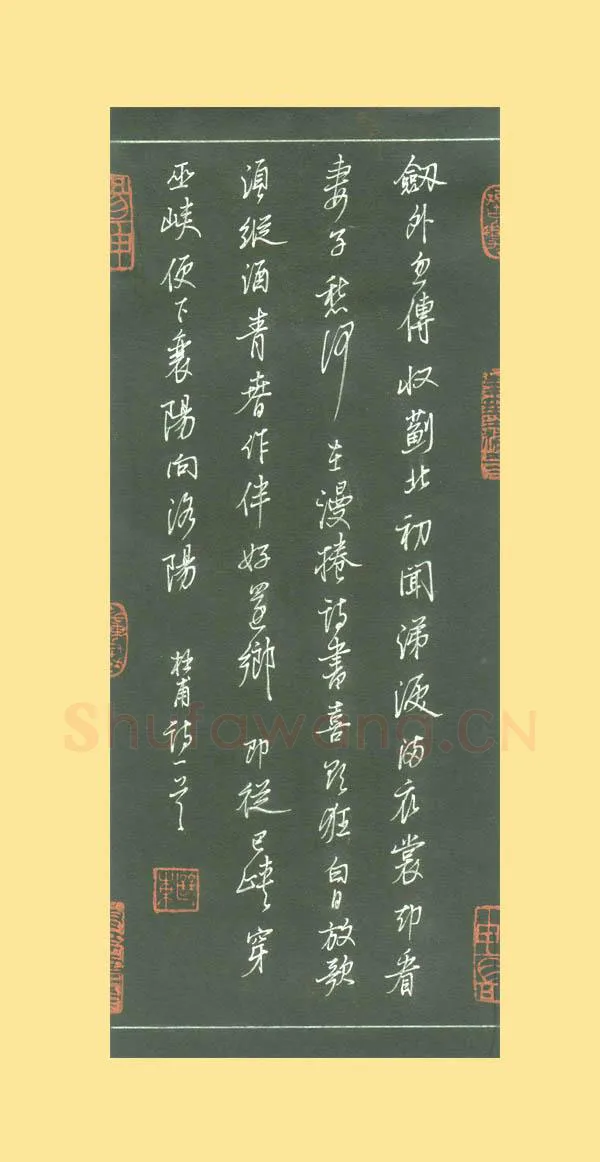 劔外忽傳收薊北初聞涕淚滿衣裳却看
妻子愁何在漫捲詩書喜欲狂白日放歌
須縱酒青春作伴好還鄉即從巴峽穿
巫峽便下襄陽向洛陽 杜甫詩一首
Shufawang.CN